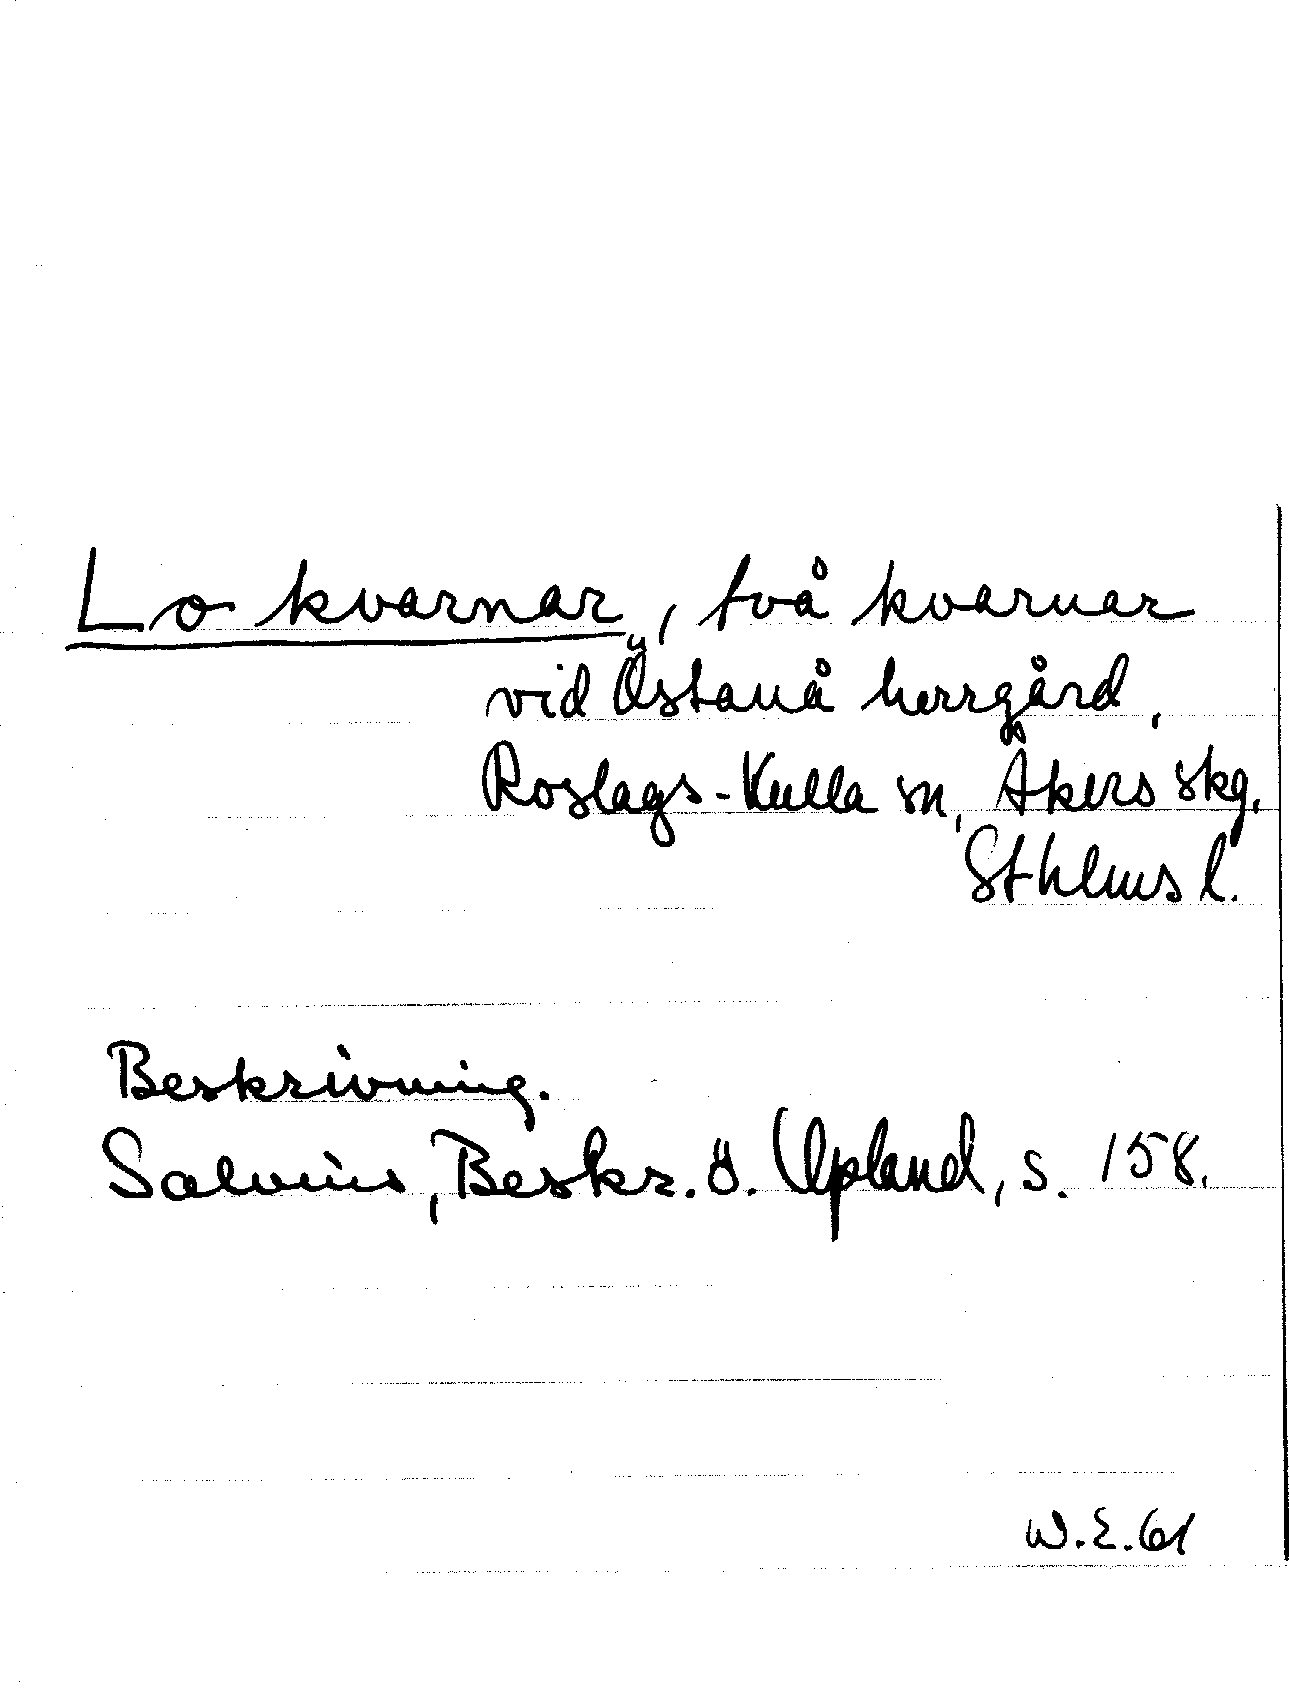 Lo kvarnar, två kvarnar
vid Östanå herrgård,
Roslags-Kulla sn, Åkers skg,
Sthlms l.
Beskrivning.
Salvius, Beskr. ö. Upland, s. 158.
W.E.61